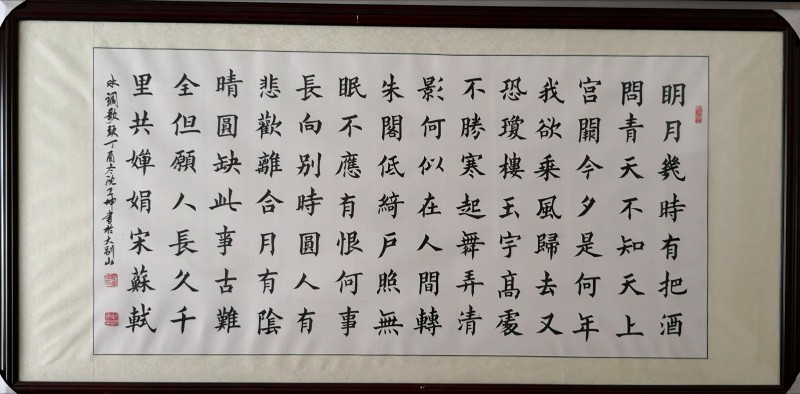 明月幾時有把酒
問青天不知天上
宫闕今夕是何年
我欲乘風歸去又
恐瓊樓玉宇髙處
不勝寒起舞弄清
影何似在人間轉
朱閣低綺戶照無
眠不應有恨何事
長向別時圓人有
悲歡離合月有陰
晴圓缺此事古難
全但願人長久千
里共嬋娟宋蘇軾
水調歌頭丁酉冬書於大別山